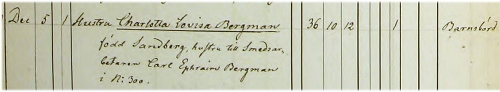 Dec 5 1 Hustru Charlotta Lovisa Bergman 36 10 12 1 Barnsbörd
född Sandberg, hustru till Smedsar-
betaren Carl Ephraim Bergman
i N: 300.